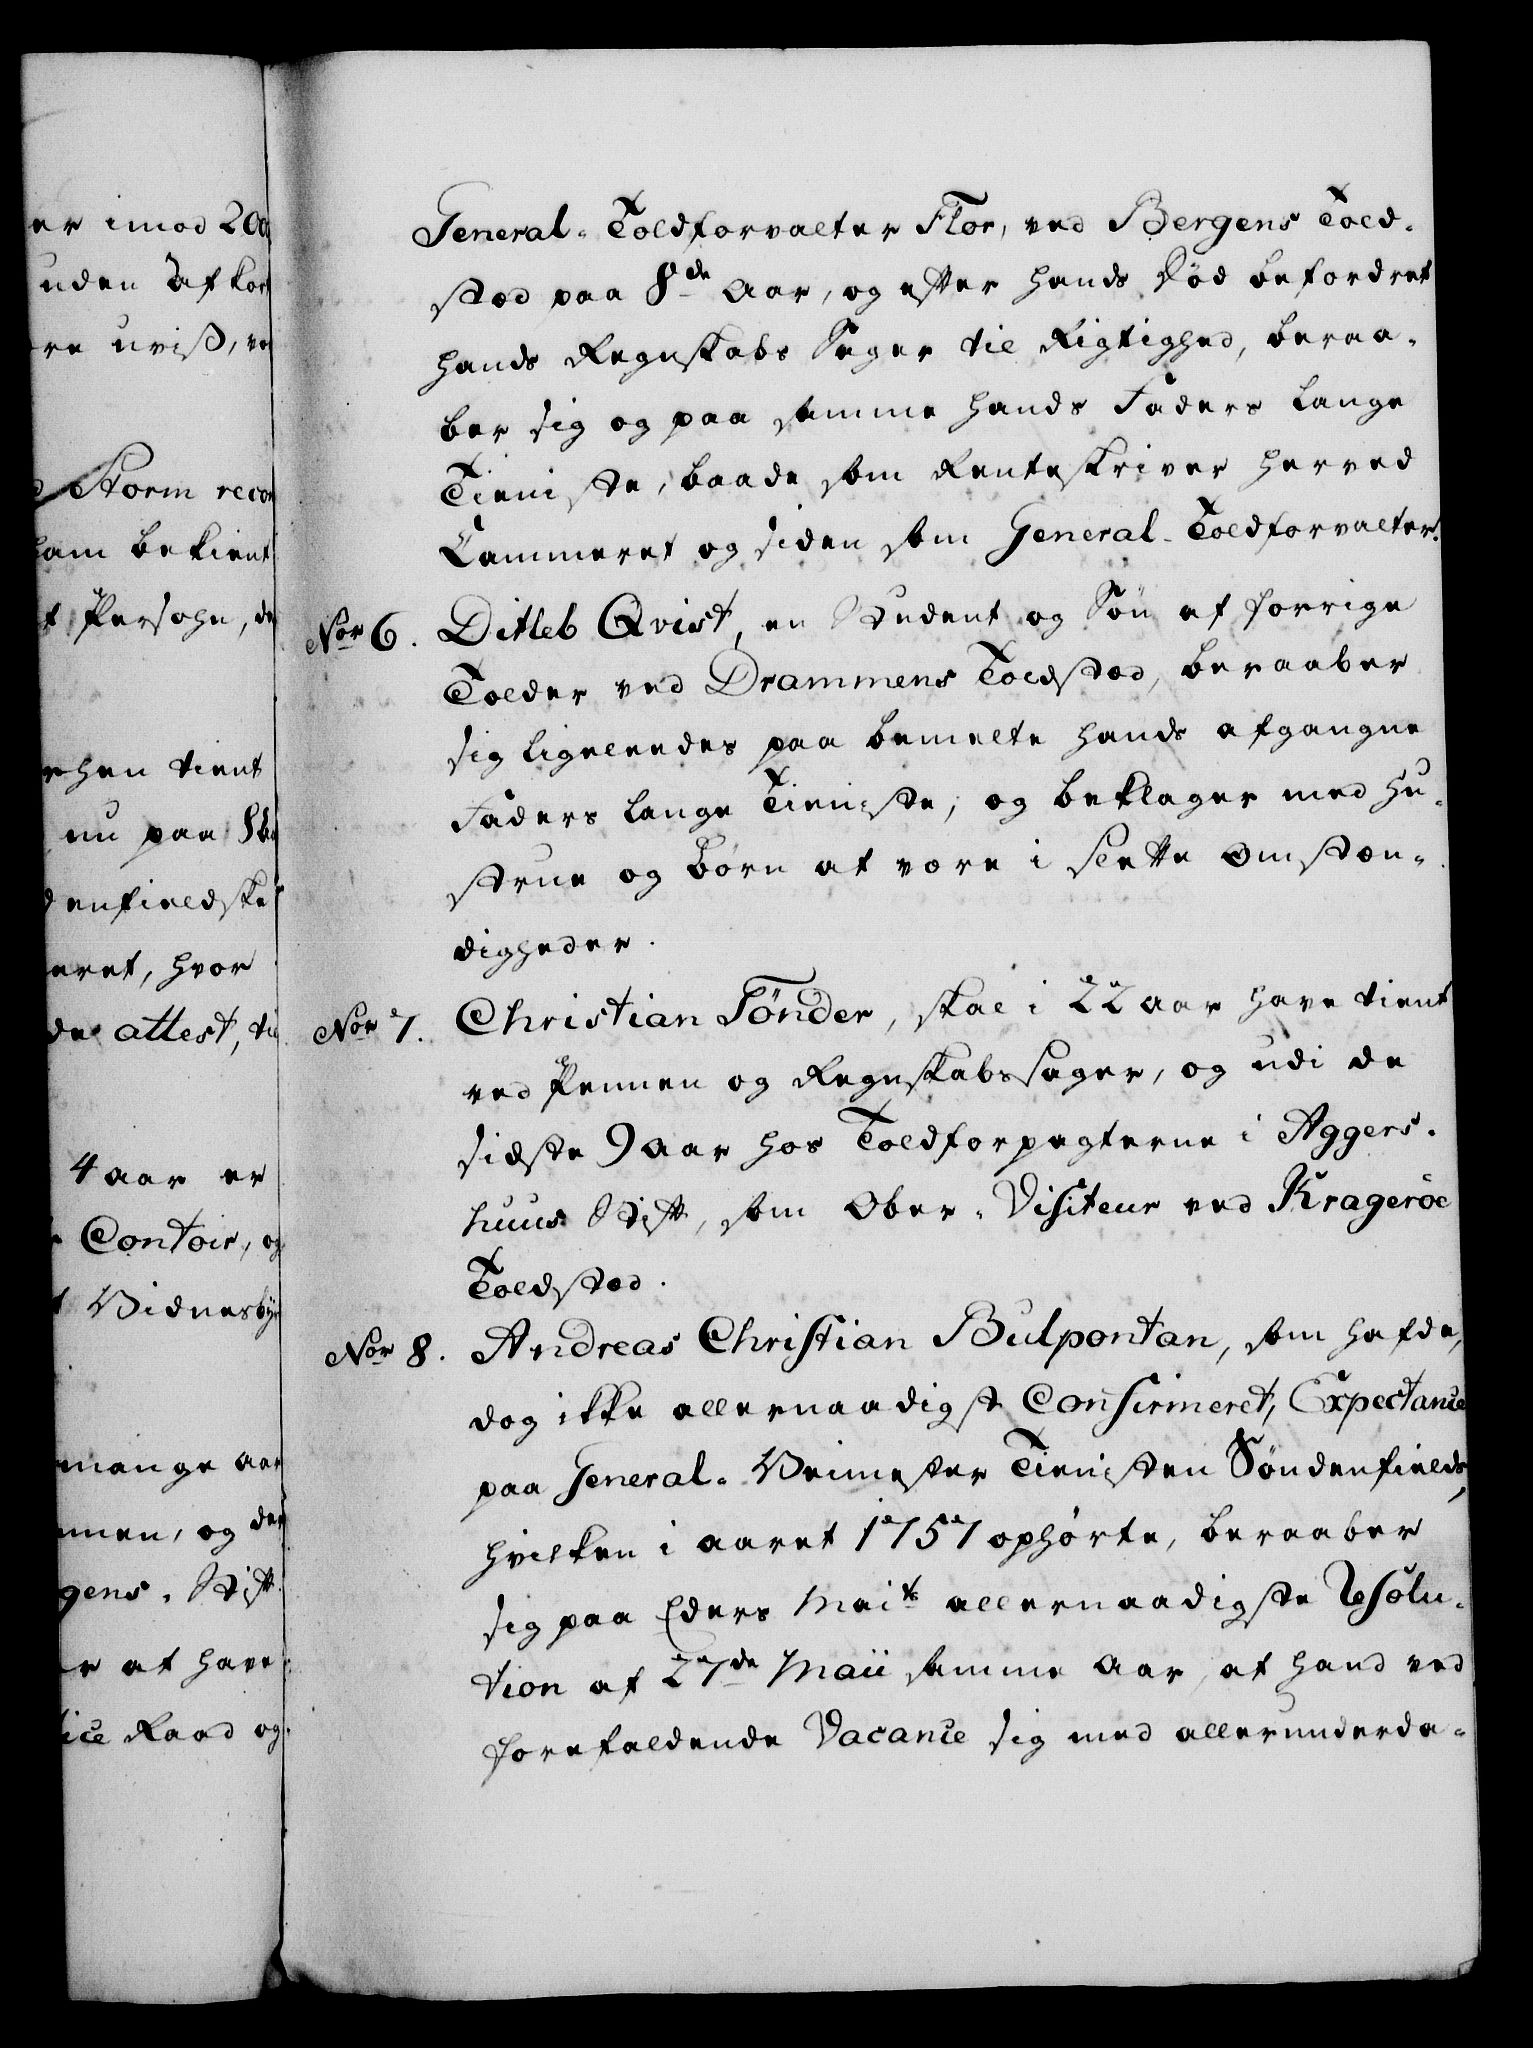 er imod 200
uden af kor
re uviß, ve
Storm reco
ham bekient
t Persohn, de
rhen tient
nu paa
denfieldske
eret, hvor
de attest, til
4 aar er
Contoir, og
t Vidnesby
mange aar
nnen, og der
gens. Stift
er at have
ice Raad og
General-Toldforvalter Flor, ved Bergens Told-
stæd paa 8de Aar, og efter hands Død befordret
hands Regnskabs Sager til Rigtighed, beraa-
ber sig og paa samme hands Faders lange
Tieniste, baade som Renteskriver herved
Cammeret og siden som General-Toldforvalter.
Nor 6. Ditleb Qvist, en Student og Søn af forrige
Tolder ved Drammens Toldstæd, beraaber
sig ligeleedes paa bemelte hands afgangne
Faders lange Tieniste, og beklager med Hu-
strue og Børn at være i slette Omstæn-
digheder.
Nor 7. Christian Tönder, skal i 22 aar have tient
ved Pennen og Regnskabssager, og udi de
sidste 9 aar hos Toldforpagterne i Aggers-
huus Stift, som Ober-Visiteur ved Krageröe
Toldstæd.
Nor 8. Andreas Christian Bulpontan, som hafde,
dog ikke allernaadigst Confirmeret, Expectance
paa General-Veimester Tienisten Søndenfields,
hvilken i aaret 1757 ophørte, beraaber
sig paa Eders Maits allernaadigste Resolu-
tion af 27de Maii samme Aar, at hand ved
forefaldende Vacance sig med allerunderda-